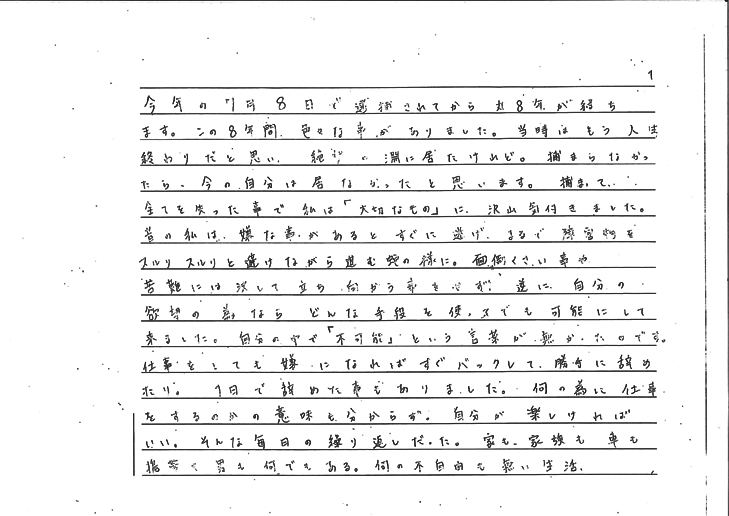 1
今年の7月8日で逮捕されてから丸8年が経ち
ます。この8年間、色々な事がありました。当時はもう人生
終わりだと思い、絶望の淵に居たけれど。捕まらなかっ
たら、今の自分は居なかったと思います。捕まって、
全てを失った事で私は「大切なもの」に、沢山気付きました。
昔の私は、嫌な事があるとすぐに逃げ、まるで障害物を
スルリスルリと避けながら進む蛇の様に。面倒くさい事や
苦難には決して立ち向かう事をせず。逆に、自分の
欲望の為なら どんな手段を使ってでも可能にして
来ました。自分の中で「不可能」という言葉が無かったのです。
仕事をしても嫌になればすぐバックレて、勝手に辞め
たり。1日で辞めた事もありました。何の為に仕事
をするのかの意味も分からず。自分が楽しければ
いい。そんな毎日の繰り返しだった。家も、家族も車も
携帯も 何でもある。何の不自由も無い生活、